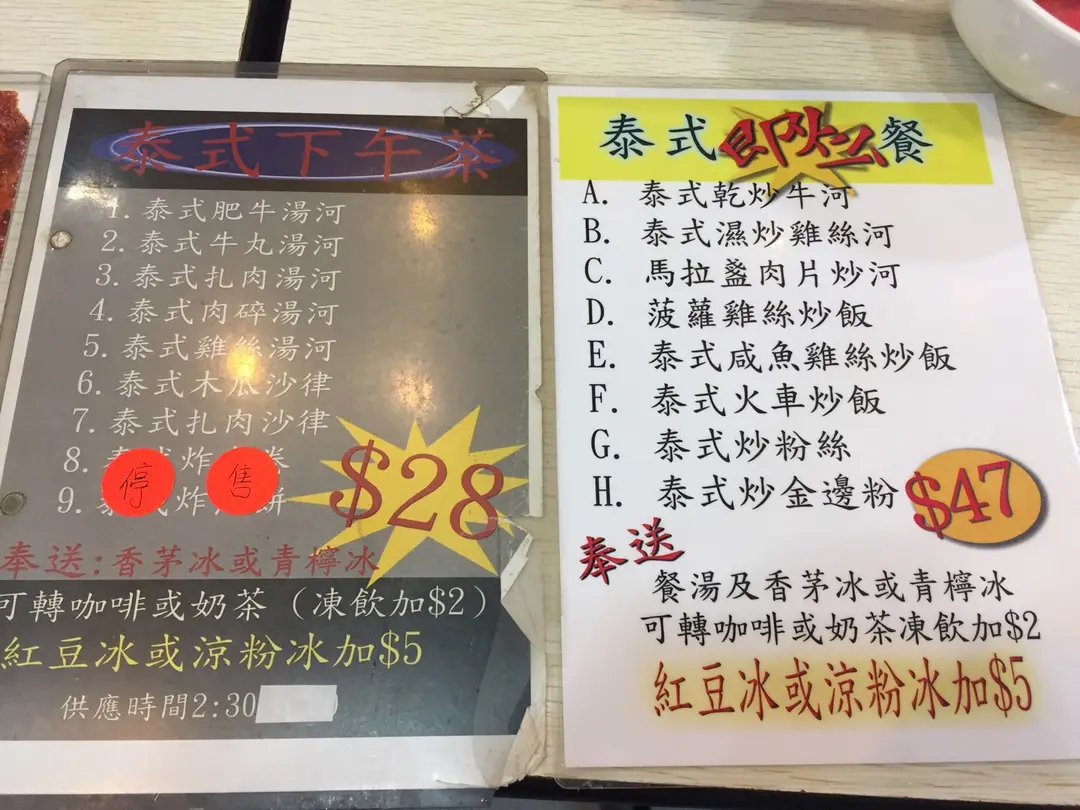 泰式下午茶
1. 泰式肥牛湯河
2. 泰式牛丸湯河
3. 泰式扎肉湯河
4. 泰式肉碎湯河
5. 泰式雞絲湯河
6. 泰式木瓜沙律
7. 泰式扎肉沙律
8. 泰式炸 卷
9. 泰式炸 餅
停 售
$28
奉送:香茅冰或青檸冰
可轉咖啡或奶茶 (凍飲加$2)
紅豆冰或涼粉冰加$5
供應時間2:30
泰式即炒餐
A. 泰式乾炒牛河
B. 泰式濕炒雞絲河
C. 馬拉盞肉片炒河
D. 菠蘿雞絲炒飯
E. 泰式咸魚雞絲炒飯
F. 泰式火車炒飯
G. 泰式炒粉絲
H. 泰式炒金邊粉
$47
奉送
餐湯及香茅冰或青檸冰
可轉咖啡或奶茶凍飲加$2
紅豆冰或涼粉冰加$5